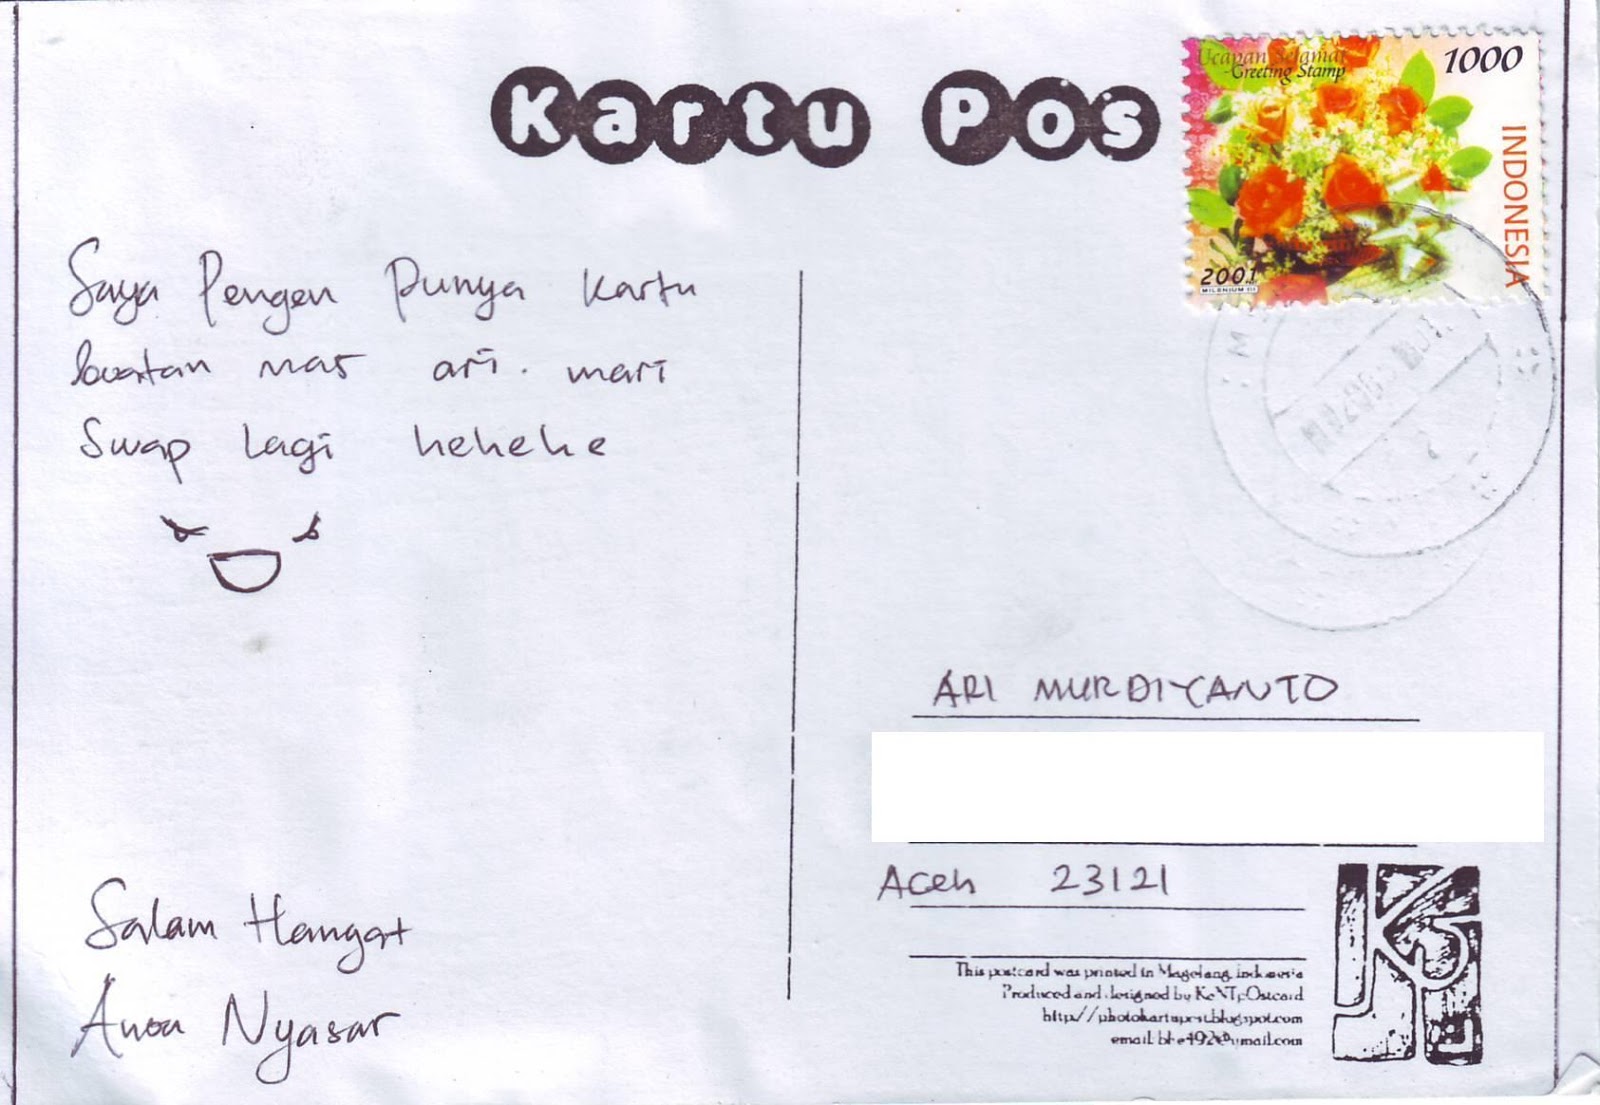 Kartu Pos
Ucapan Selamat
-Greeting Stamp
1000
INDONESIA
2001
MILENIUM III
Saya Pengen Punya Kartu
buatan mas ari. mari
Swap Lagi hehehe
Salam Hangat
Nyasar
ARI MURDIYANTO
Aceh 23121
This postcard was printed in Magelang, indonesia
Produced and designed by KeNTpOstcard
http://photokartupost.blogspot.com
email: